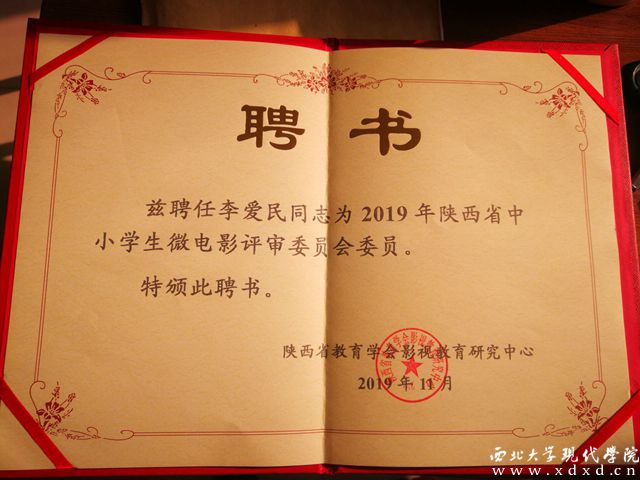 聘书
兹聘任李爱民同志为2019年陕西省中
小学生微电影评审委员会委员。
特颁此聘书。
陕西省教育学会影视教育研究中心
2019年11月
西北大学现代学院
www.xdxd.cn